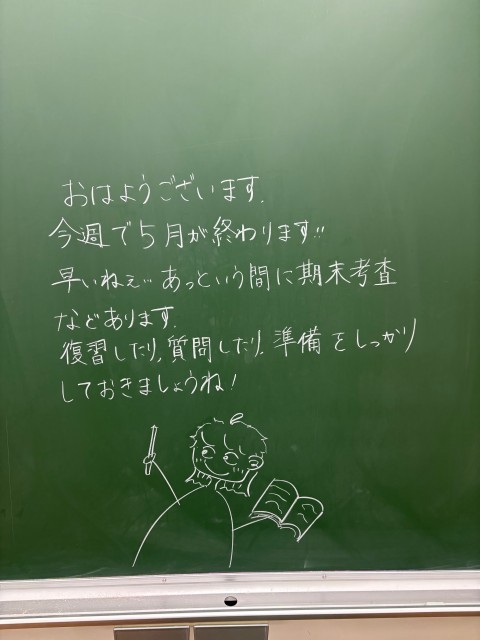 おはようございます.
今週で5月が終わります!!
早いねぇ… あっという間に期末考査
などあります.
復習したり,質問したり,準備をしっかり
しておきましょうね!